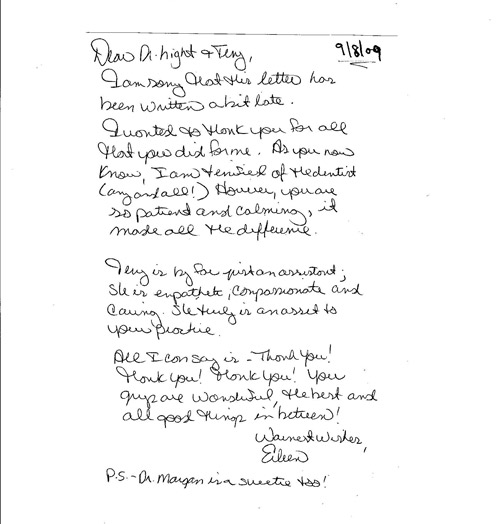 9/8/09
Dear Dr. Light & Tery,
I am sorry that this letter has
been written a bit late.
I wanted to thank you for all
that you did for me. As you now
know, I am terrified of the dentist
(any and all!) However, you are
so patient and calming, it
made all the difference.
Tery is by far just an assistant;
she is empathetic, compassionate and
caring. She truly is an asset to
your practice.
All I can say is - Thank you!
Thank you! Thank you! You
guys are wonderful, the best and
all good things in between!
Warmest Wishes,
Eileen
P.S. - Dr. Morgan is a sweetie too!